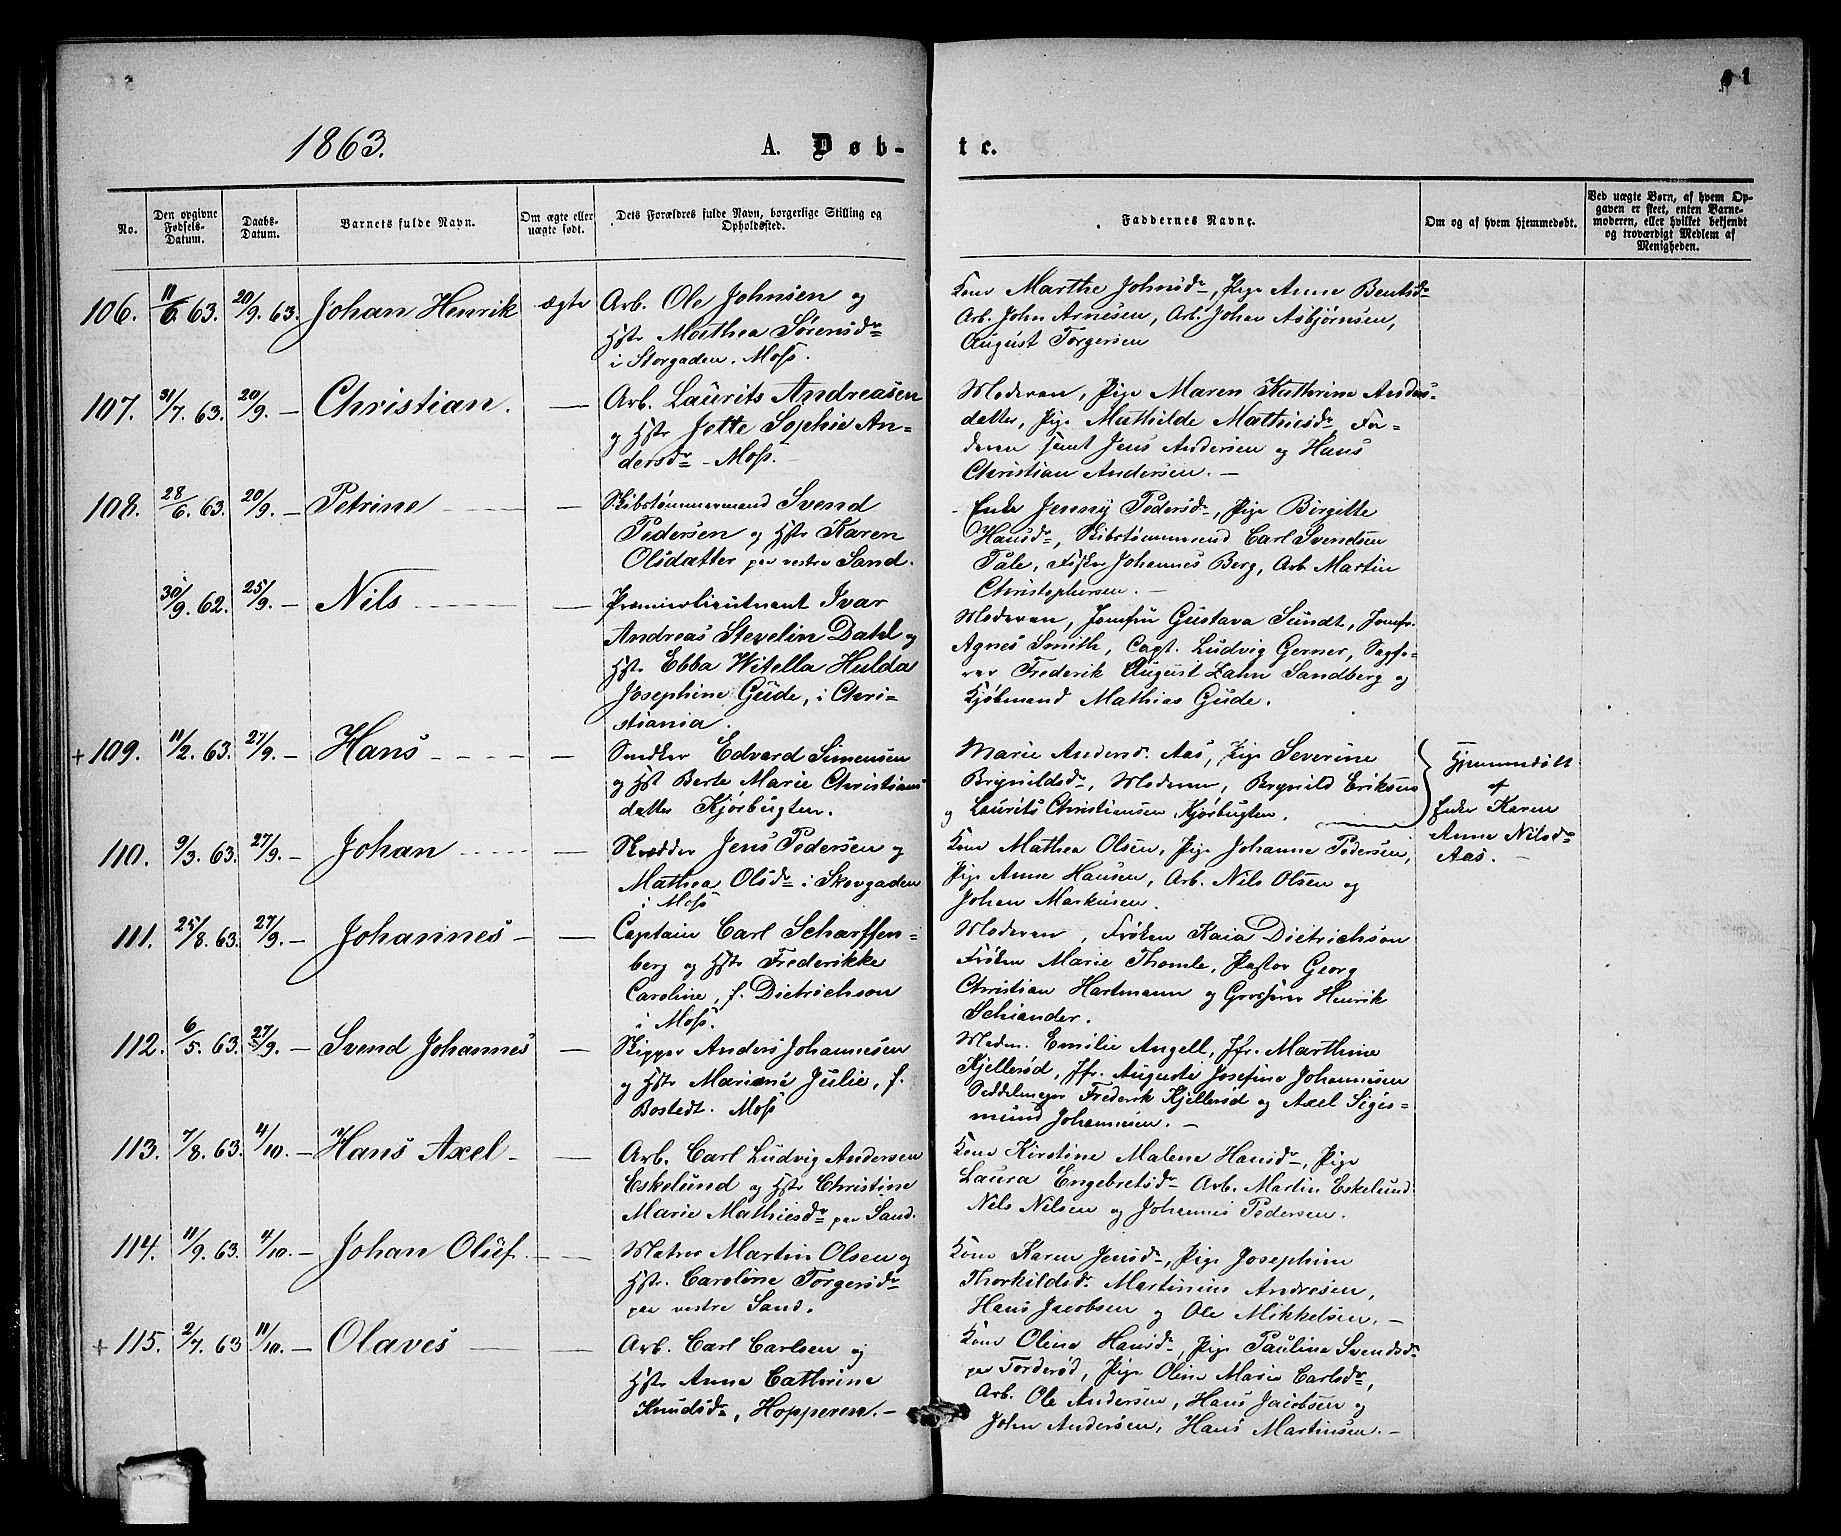 1863.
A. Døb-
te.
No.
Den opgivne Fødsels-Datum.
Daabs-Datum.
Barnets fulde Navn.
Om ægte eller uægte født.
Dets Forældres fulde Navn, borgerlige Stilling og Opholdssted.
Faddernes Navne.
Om og af hvem hjemmedøbt.
Ved uægte Børn, af hvem Op-
gaven er skeet, enten Barne-
moderen, eller hvilket bekjendt
og troværdigt Medlem af
Menigheden.
106. 11/6. 63. 20/9. 63. Johan Henrik ægte
Arb. Ole Johnsen og
Hstr Mathea Sørensdr
i Storgaden. Moss.
Kone Marthe Johnsdr, Pige Anne Bentsdr
Arb. John Arnesen, Arb. Johan Asbjørnsen,
August Torgersen
107. 31/7. 63. 20/9. — Christian. —
Arb. Laurits Andreasen
og Hstr Jotte Sophie An-
dersdr - Moss.
Moderen, Pige Maren Kathrine Anders-
datter, Pige Mathilde Mathisdr, Fa-
deren samt Jens Andersen og Hans
Christian Andersen. —
108. 28/6. 63. 20/9. — Petrine —
Skibstømmermand Svend
Pedersen og Hstr Karen
Olsdatter paa vestre Sand.
Enke Jenny Pedersdr, Pige Birgitte
Hansdr, Skibstømmermd Carl Svendsen
Tale, Fisker Johannes Berg, Arb Martin
Christophersen. —
30/9. 62. 25/9. — Nils —
Premierlieutnant Ivar
Andreas Stevelin Dahl og
Hstr Ebba Witella Hulda
Josephine Gude, i Chri-
stiania.
Moderen, Jomfru Gustava Sundt, Jomfr.
Agnes Smith, Capt. Ludvig Gerner, Sagfø-
rer Frederik August Zahn Sandberg og
Kjøbmand Mathias Gude.
+ 109. 11/2. 63. 27/9. — Hans —
Snedker Edvard Simensen
og Hst Berte Marie Christians
datter Kjørbugten.
Marie Andersd. Aas, Pige Severine
Brynildsdr, Moderen, Brynild Eriksen
og Laurits Christiansen Kjørbugten.
Hjemmedøbt
af
Enke Karen
Anne Nilsdr
Aas. —
110. 9/3. 63. 27/9. — Johan —
Skrædder Jens Pedersen og
Mathea Olsdr i Skovgaden
i Moss
Kone Mathea Olsen, Pige Johanne Pedersen,
Pige Anne Hansen, Arb. Nils Olsen og
Johan Markusen.
111. 25/8. 63. 27/9. — Johannes — —
Captain Carl Scharffen-
berg og Hstr Frederikke
Caroline, f. Dietrichson
i Moss.
Moderen, Frøken Kaia Dietrichson
Frøken Marie Thomle, Pastor Georg
Christian Hartmann og Grosserer Henrik
Schiander.
112. 6/5. 63. 27/9. — Svend Johannes —
Skipper Anders Johannesen
og Hstr Mariane Julie, f.
Bostedt. Moss
Moderen. Emilie Angell, Jfr. Marthine
Kjellerød, Jfr. Auguste Josefine Johannesen
Seddelmeyer Frederik Kjellerød og Axel Sigis-
mund Johannesen. —
113. 7/8. 63. 4/10. — Hans Axel — —
Arb. Carl Ludvig Andersen
Eskelund og Hstr Christine
Marie Mathiesdr paa Sand.
Kone Kirstine Malene Hansdr, Pige
Laura Engebretsdr Arb. Martin Eskelund
Nils Nilsen og Johannes Pedersen.
114. 11/9. 63. 4/10. — Johan Oluf. —
Matros Martin Olsen og
Hstr. Caroline Torgersdr
paa vestre Sand.
Kone Karen Jensdr, Pige Josephine
Thorkildsdr. Martinius Andresen,
Hans Jacobsen og Ole Mikkelsen. —
+ 115. 2/7. 63 11/10. — Olaves — —
Arb. Carl Carlsen og
Hstr Anne Cathrine
Knudsdr, Hopperen. —
Kone Oline Hansdr, Pige Pauline Svendsd.
paa Torderød, Pige Oline Marie Carlsdr,
Arb. Ole Andersen, Hans Jacobsen og
John Andersen, Hans Martinsen. —